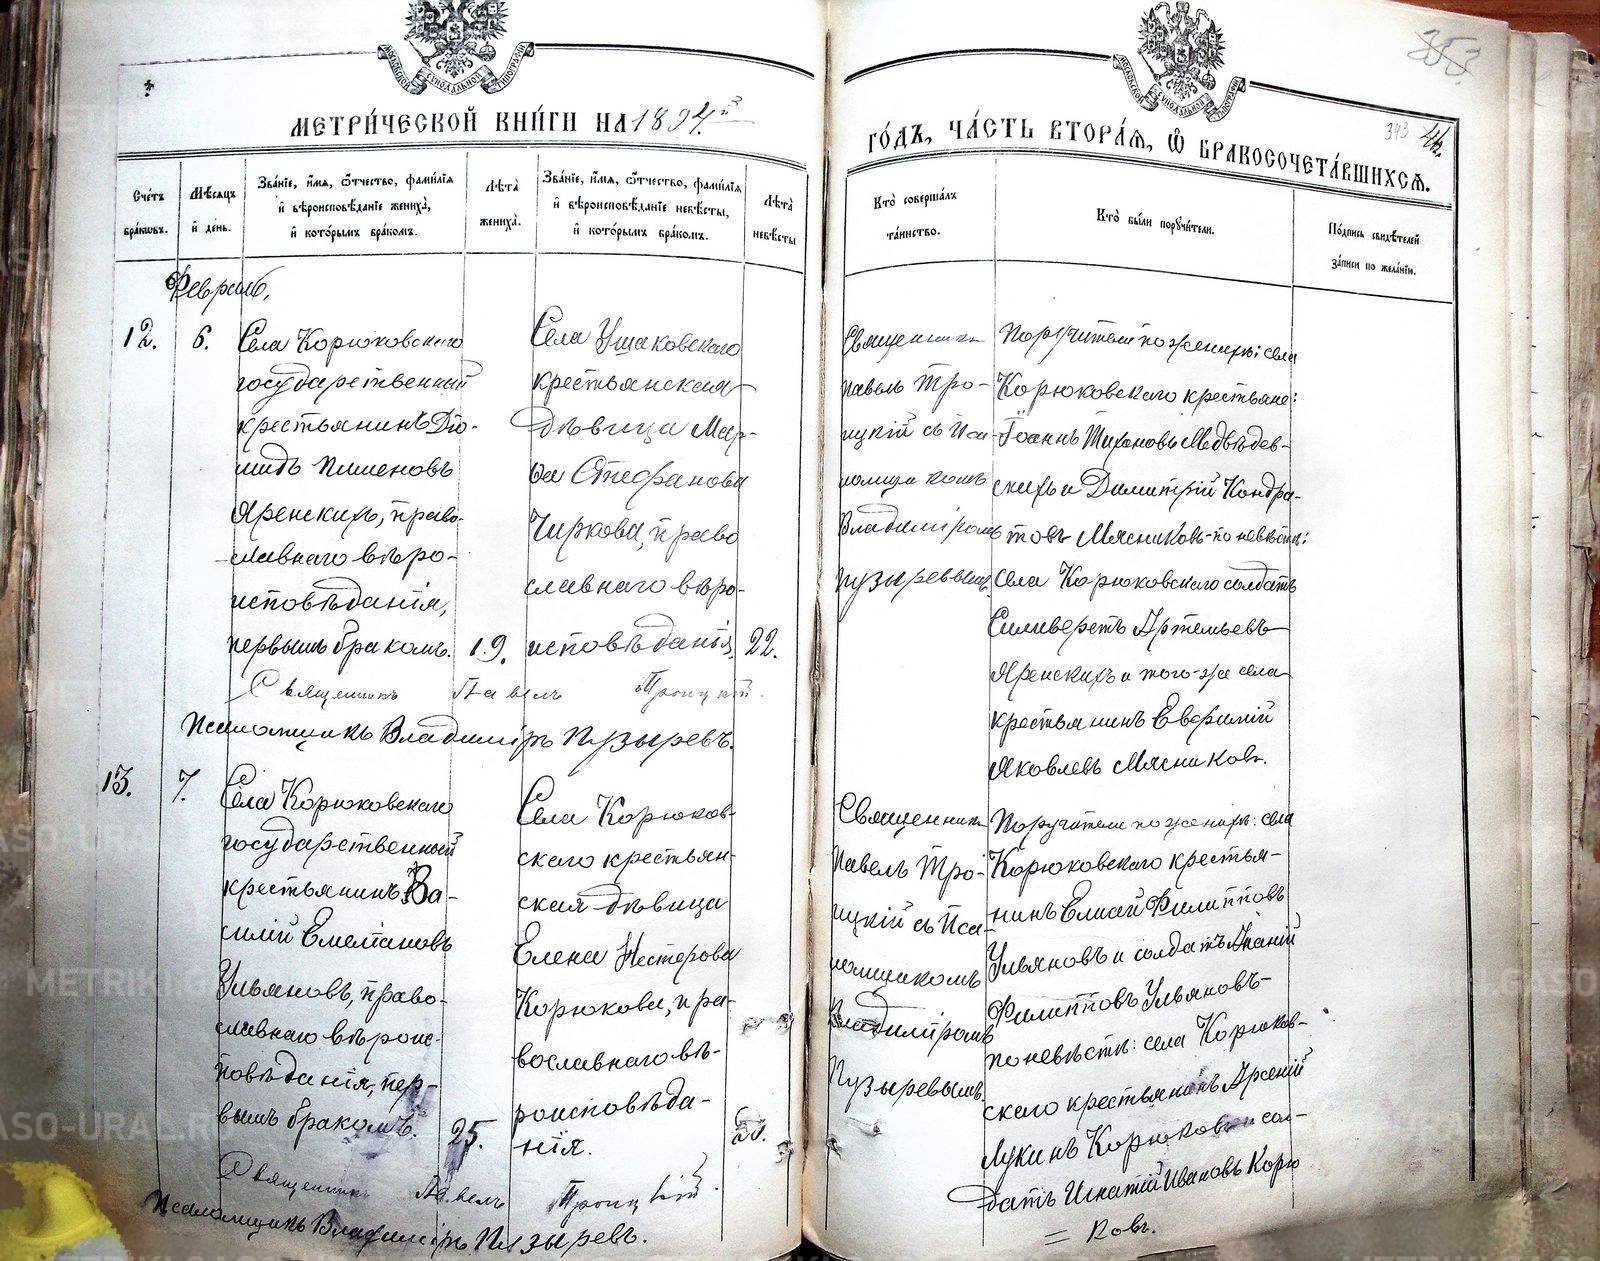 МЕТРИ́ЧЕСКОЙ КНИ́ГИ НА 1894й
ГО́ДЪ, ЧА́СТЬ ВТОРА́Я, Ѽ БРАКОСОЧЕТА́ВШИХСЯ.
353
393
44.
МОСКОВСКОЙ СУНОДАЛЬНОЙ ТИПОГРАФІИ
МОСКОВСКОЙ СУНОДАЛЬНОЙ ТИПОГРАФІИ
Сче́тъ бра́кѡвъ.
Мѣ́сяцъ й де́нь.
Зва́нїе, и́мя, ѻ́тчество, фами́лїя й вѣроисповѣ́данїе жениха̀, й кото́рымъ бра́комъ.
Лѣ̑та̀ жениха̀.
Зва́нїе, и́мя, ѻ́тчество, фами́лїя й вѣроисповѣ́данїе невѣ́сты, й кото́рымъ бра́комъ.
Лѣ̑та̀ невѣ́сты
Кто̀ соверша́лъ та́инство.
Кто̀ бы́ли порꙋчи́тели.
По́дпись свидѣ́телей за́писи по жела́нїю.
Февраль,
12.
6.
Села Корюковскаго
государственный
крестьянинъ Діо-
мидъ Пименовъ
Яренскихъ, право-
славнаго вѣро-
исповѣданія,
первымъ бракомъ.
19.
Села Ушаковскаго
крестьянская
дѣвица Мар-
ѳа Стефанова
Чиркова, право
славнаго вѣро-
исповѣданія.
22.
Священникъ
Павелъ Тро-
ицкій съ Пса-
ломщикомъ
Владиміромъ
Пузыревымъ.
Поручители по женихѣ: села
Корюковскаго крестьяне:
Іоаннъ Тихоновъ Медвѣдев-
скихъ и Димитрій Кондра-
товъ Мясниковъ - по невѣстѣ:
села Корюковскаго солдатъ
Селиверстъ Артемьевъ
Яренскихъ и того-же села
крестьянинъ Евфимій
Яковлевъ Мясниковъ.
Священникъ Павелъ Троицкій.
Псаломщикъ Владиміръ Пузыревъ.
13.
7.
Села Корюковскаго
государственный
крестьянинъ Ва-
силій Емеліановъ
Ульяновъ, право-
славнаго вѣроис-
повѣданія, пер-
вымъ бракомъ.
25.
Села Корюков-
скаго крестьян-
ская дѣвица
Елена Нестерова
Корюкова, пра-
вославнаго вѣ-
роисповѣда-
нія.
Священникъ
Павелъ Тро-
ицкій съ Пса-
ломщикомъ
Владиміромъ
Пузыревымъ.
Поручители по женихѣ: села
Корюковскаго крестья-
нинъ Елисей Филипповъ
Ульяновъ и солдатъ Ананій
Филипповъ Ульяновъ-
по невѣстѣ: села Корюков-
скаго крестьянинъ Арсеній
Лукинъ Корюковъ и сол-
датъ Игнатій Ивановъ Корю
= ковъ.
Священникъ Павелъ Троицкій.
Псаломщикъ Владиміръ Пузыревъ.